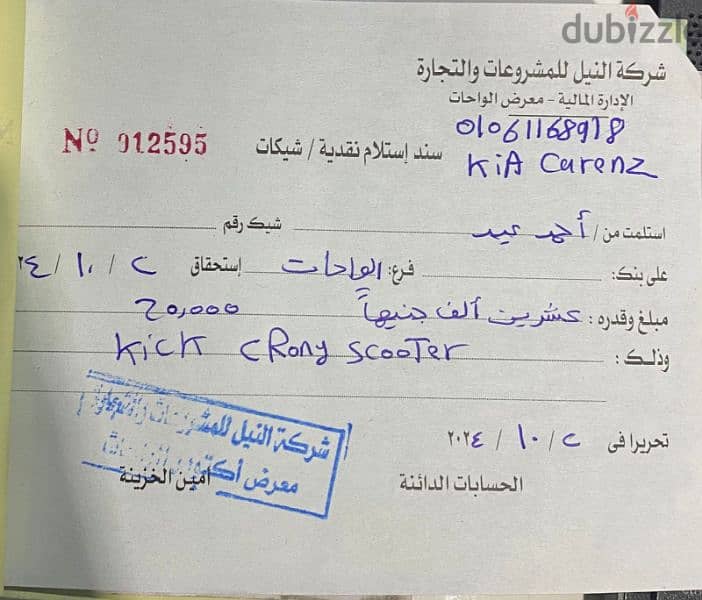 dubizzle
شركة النيل للمشروعات والتجارة
الإدارة المالية - معرض الواحات
01061168918
Nº 012595 سند إستلام نقدية / شيكات
KiA Carenz
استلمت من / أحمد عيد شيك رقم
على بنك: فرع: الواحات إستحقاق ٢ / ١٠ / ٢٤
مبلغ وقدره : عشرين ألف جنيهاً 20,000
وذلك : Kick CRony Scooter
تحريرا فى ٢ / ١٠ / ٢٠٢٤
شركة النيل للمشروعات والتجارة
معرض أكتوبر
الحسابات الدائنة أمين الخزينة